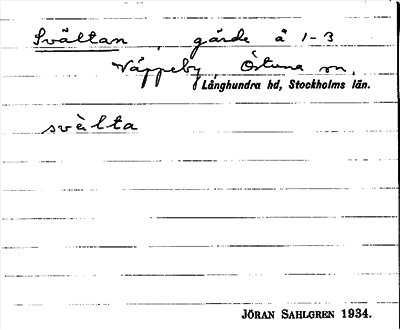 Svältan, gärde å 1-3
Väppeby, Östuna sn,
Långhundra hd, Stockholms län.
svèlta
JÖRAN SAHLGREN 1934.